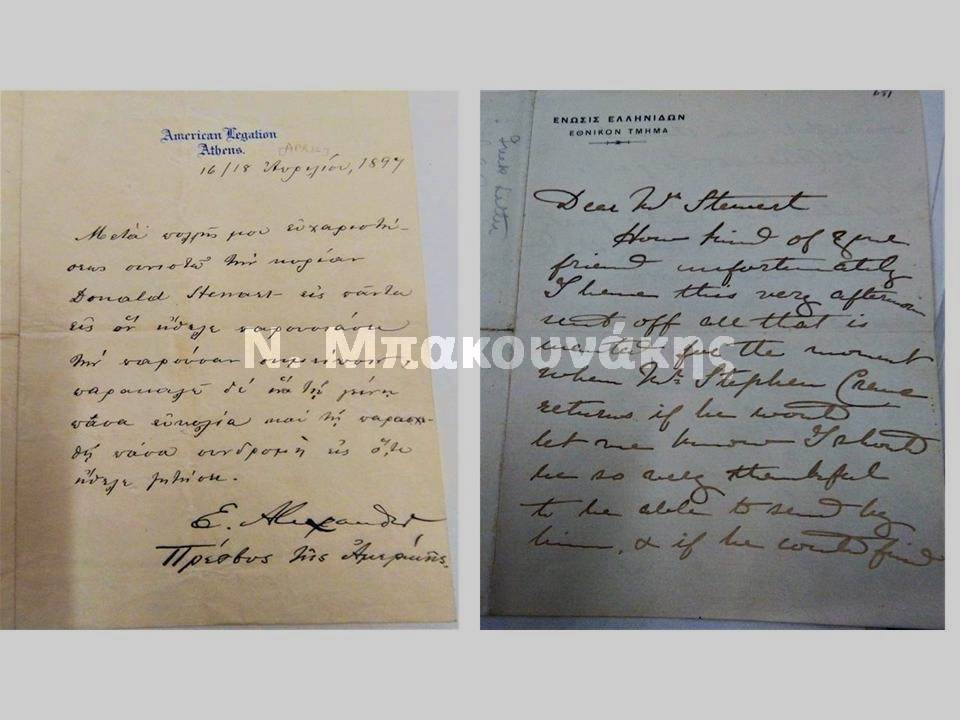 American Legation
Athens.
APRIL
16/18 Ἀπριλίου, 1897
Μετὰ πολλῆς μου εὐχαριστή-
σεως συνιστῶ τὴν κυρίαν
Donald Stewart εἰς πάντα
εἰς ὃν ἤθελε παρουσιάσει
τὴν παροῦσαν
παρακαλῶ δὲ
πᾶσα εὐκολία καὶ τῇ παρασχε-
θῇ πᾶσα συνδρομὴ εἰς ὅ,τι
ἤθελε ζητήσει.
E. Alexander
Πρέσβυς τῆς Ἀμερικῆς.
ΕΝΩΣΙΣ ΕΛΛΗΝΙΔΩΝ
ΕΘΝΙΚΟΝ ΤΜΗΜΑ
Greek Letter
Dear Mrs Stewart
How kind of your
friend unfortunately
I have this very afternoon
sent off all that is
wanted for the moment
when Mr Stephen Crane
returns if he would
let me know I should
be so very thankful
to be able to send by
him, & if he could find
Ν. Μπακουνάκης